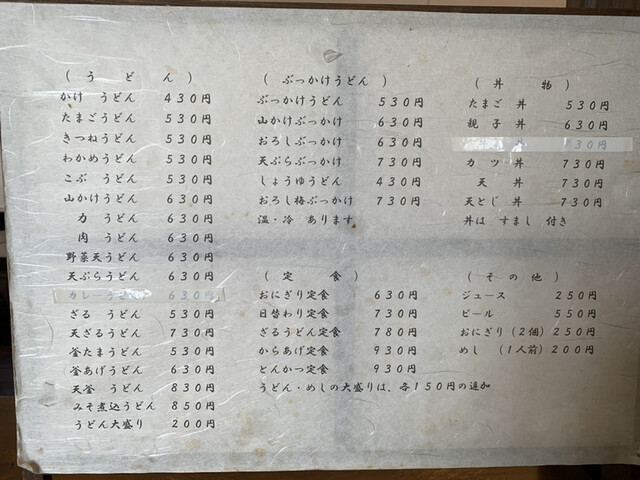 (うどん)
かけ うどん 430円
たまごうどん 530円
きつねうどん 530円
わかめうどん 530円
こぶ うどん 530円
山かけうどん 630円
力 うどん 630円
肉 うどん 630円
野菜天うどん 630円
天ぷらうどん 630円
カレーうどん 630円
ざる うどん 530円
天ざるうどん 730円
釜たまうどん 530円
釜あげうどん 630円
天釜 うどん 830円
みそ煮込うどん 850円
うどん大盛り 200円
(ぶっかけうどん)
ぶっかけうどん 530円
山かけぶっかけ 630円
おろしぶっかけ 630円
天ぷらぶっかけ 730円
しょうゆうどん 430円
おろし梅ぶっかけ 730円
温・冷 あります
(丼物)
たまご 丼 530円
親子 丼 630円
30円
カツ 丼 730円
天 丼 730円
天とじ 丼 730円
丼は すまし 付き
(定食)
おにぎり定食 630円
日替わり定食 730円
ざるうどん定食 780円
からあげ定食 930円
とんかつ定食 930円
うどん・めしの大盛りは、各150円の追加
(その他)
ジュース 250円
ビール 550円
おにぎり(2個) 250円
めし (1人前) 200円